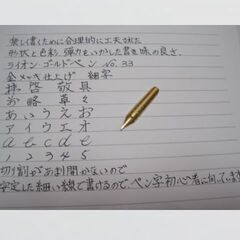 楽しく書くために合理的に工夫された
形状と色彩、弾力をいかした書き味の良さ。
ライオン ゴールドペン No.33
金メッキ仕上げ 細字
拝啓 敬具
前略 草々
あいうえお
アイウエオ
a b c d e
1 2 3 4 5
切り割があまり開かないので
安定した細い線で書けるので、ペン字初心者に向っています